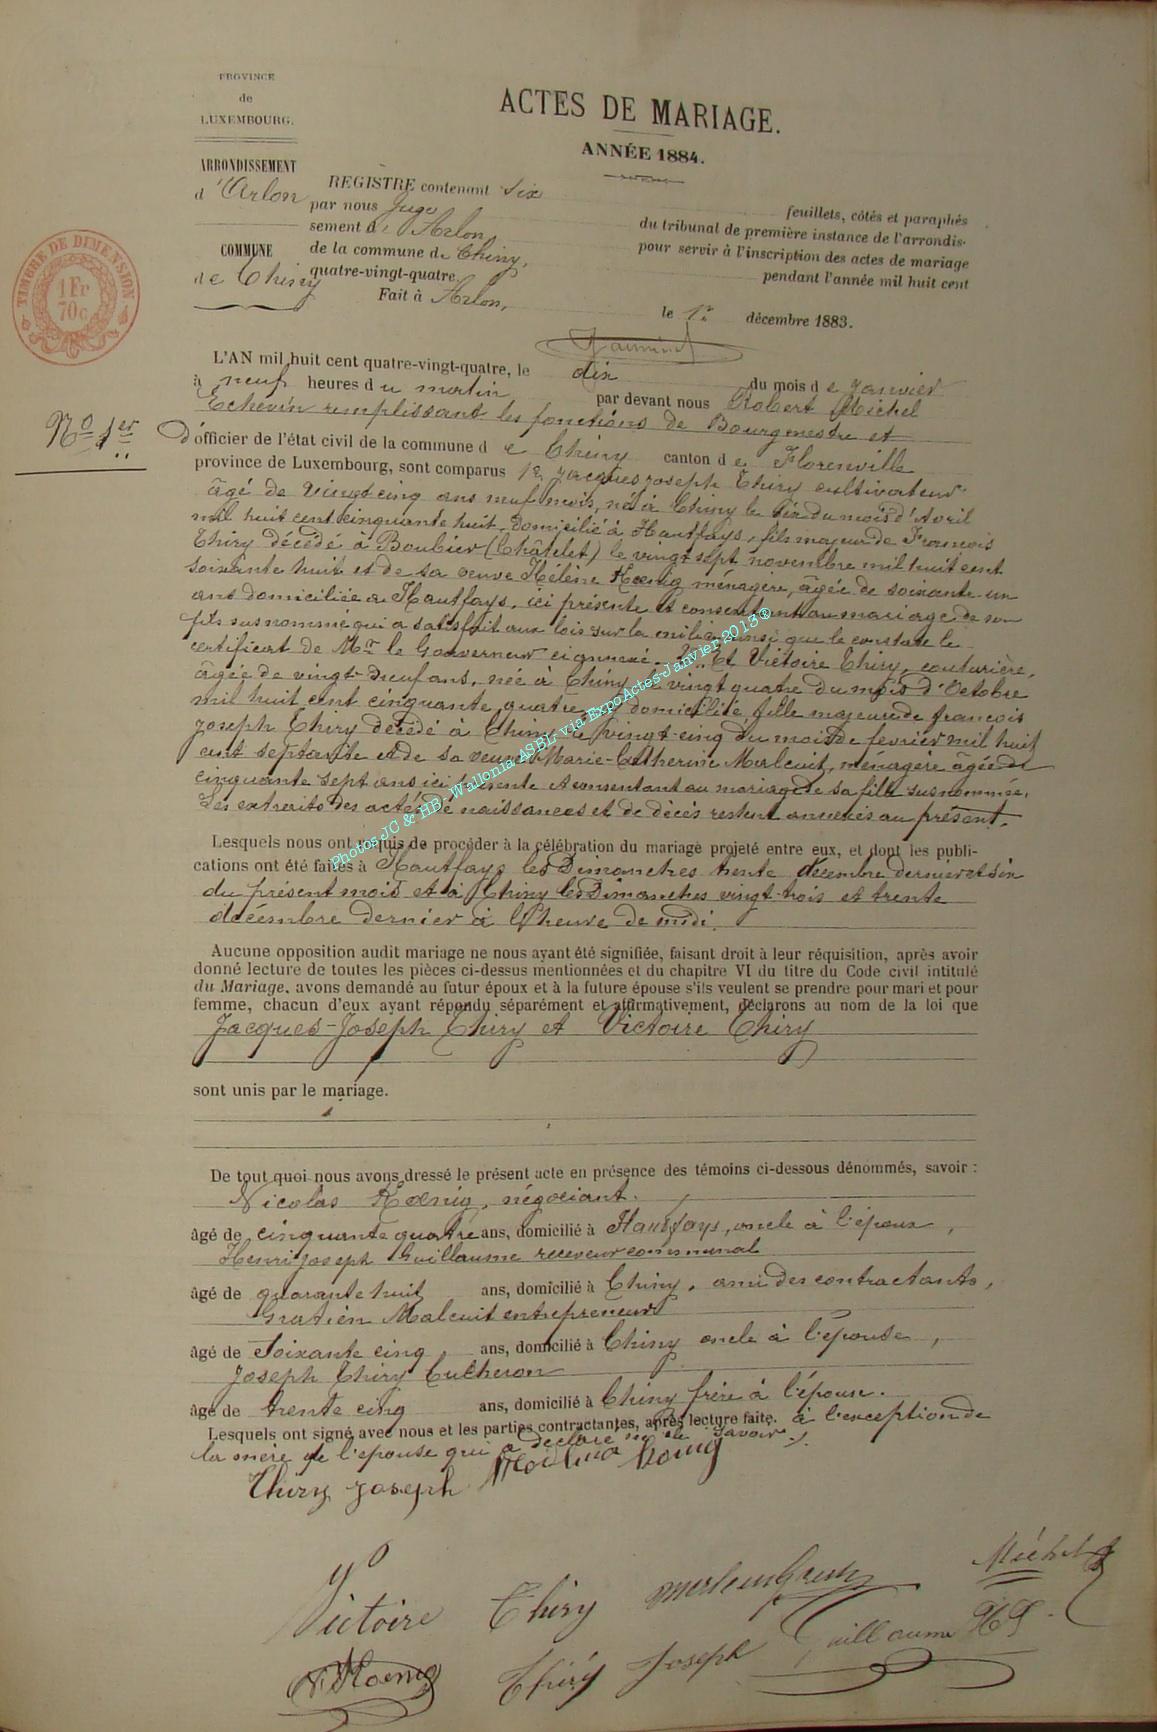 PROVINCE
de
LUXEMBOURG.
ARRONDISSEMENT
d'Arlon
COMMUNE
de Chiny
TIMBRE DE DIMENSION
1 Fr
70 c
ACTES DE MARIAGE.
ANNÉE 1884.
REGISTRE contenant six feuillets, côtés et paraphés
par nous Juge du tribunal de première instance de l'arrondis-
sement d'Arlon, pour servir à l'inscription des actes de mariage
de la commune de Chiny, pendant l'année mil huit cent
quatre-vingt-quatre.
Fait à Arlon, le 1er décembre 1883.
L'AN mil huit cent quatre-vingt-quatre, le dix du mois de Janvier
à neuf heures du matin par devant nous Robert Michel
Echevin remplissant les fonctions de Bourgmestre et
No 1er
d'officier de l'état civil de la commune de Chiny canton de Florenville
province de Luxembourg, sont comparus 1o Jacques Joseph Thiry cultivateur
âgé de vingt cinq ans neuf mois, né à Chiny le six du mois d'Avril
mil huit cent cinquante huit, domicilié à Hautfays, fils majeur de François
Thiry décédé à Boubier (Châtelet) le vingt sept novembre mil huit cent
soixante huit et de sa veuve Hélène Kœnig ménagère, âgée de soixante un
ans domiciliée à Hautfays, ici présente et consentant au mariage de son
fils susnommé qui a satisfait aux lois sur la milice ainsi que le constate le
certificat de Mr le Gouverneur ci annexé. 2o Et Victoire Thiry, couturière,
âgée de vingt-neuf ans, née à Chiny le vingt quatre du mois d'Octobre
mil huit cent cinquante quatre, y domiciliée fille majeure de françois
Joseph Thiry décédé à Chiny le vingt-cinq du mois de fevrier mil huit
cent septante et de sa veuve Marie-Catherine Malcuit, ménagère âgée de
cinquante sept ans ici présente et consentant au mariage de sa fille susnommée.
Les extraits des actes de naissances et de décès restent annexés au présent.
Photos JC & HB - Wallonia ASBL via ExpoActes-Janvier 2013®
Lesquels nous ont requis de procéder à la célébration du mariage projeté entre eux, et dont les publi-
cations ont été faites à Hautfays les Dimanches trente décembre dernier et six
du présent mois et à Chiny les Dimanches vingt-trois et trente
décembre dernier à l'heure de midi.
Aucune opposition audit mariage ne nous ayant été signifiée, faisant droit à leur réquisition, après avoir
donné lecture de toutes les pièces ci-dessus mentionnées et du chapitre VI du titre du Code civil intitulé
du Mariage, avons demandé au futur époux et à la future épouse s'ils veulent se prendre pour mari et pour
femme, chacun d'eux ayant répondu séparément et affirmativement, déclarons au nom de la loi que
Jacques-Joseph Thiry et Victoire Thiry
sont unis par le mariage.
De tout quoi nous avons dressé le présent acte en présence des témoins ci-dessous dénommés, savoir :
Nicolas Kœnig, négociant.
âgé de cinquante quatre ans, domicilié à Hautfays, oncle à l'époux,
Henri Joseph Guillaume receveur communal
âgé de quarante huit ans, domicilié à Chiny, ami des contractants,
Gratien Malcuit entrepreneur
âgé de Soixante cinq ans, domicilié à Chiny oncle à l'épouse,
Joseph Thiry bucheron
âgé de trente cinq ans, domicilié à Chiny frère à l'épouse.
Lesquels ont signé avec nous et les parties contractantes, après lecture faite. à l'exception de
la mère de l'épouse qui a déclaré ne le savoir.
Thiry Joseph Koenig
Victoire Thiry Michel
N. Koenig Thiry Joseph Guillaume HJ